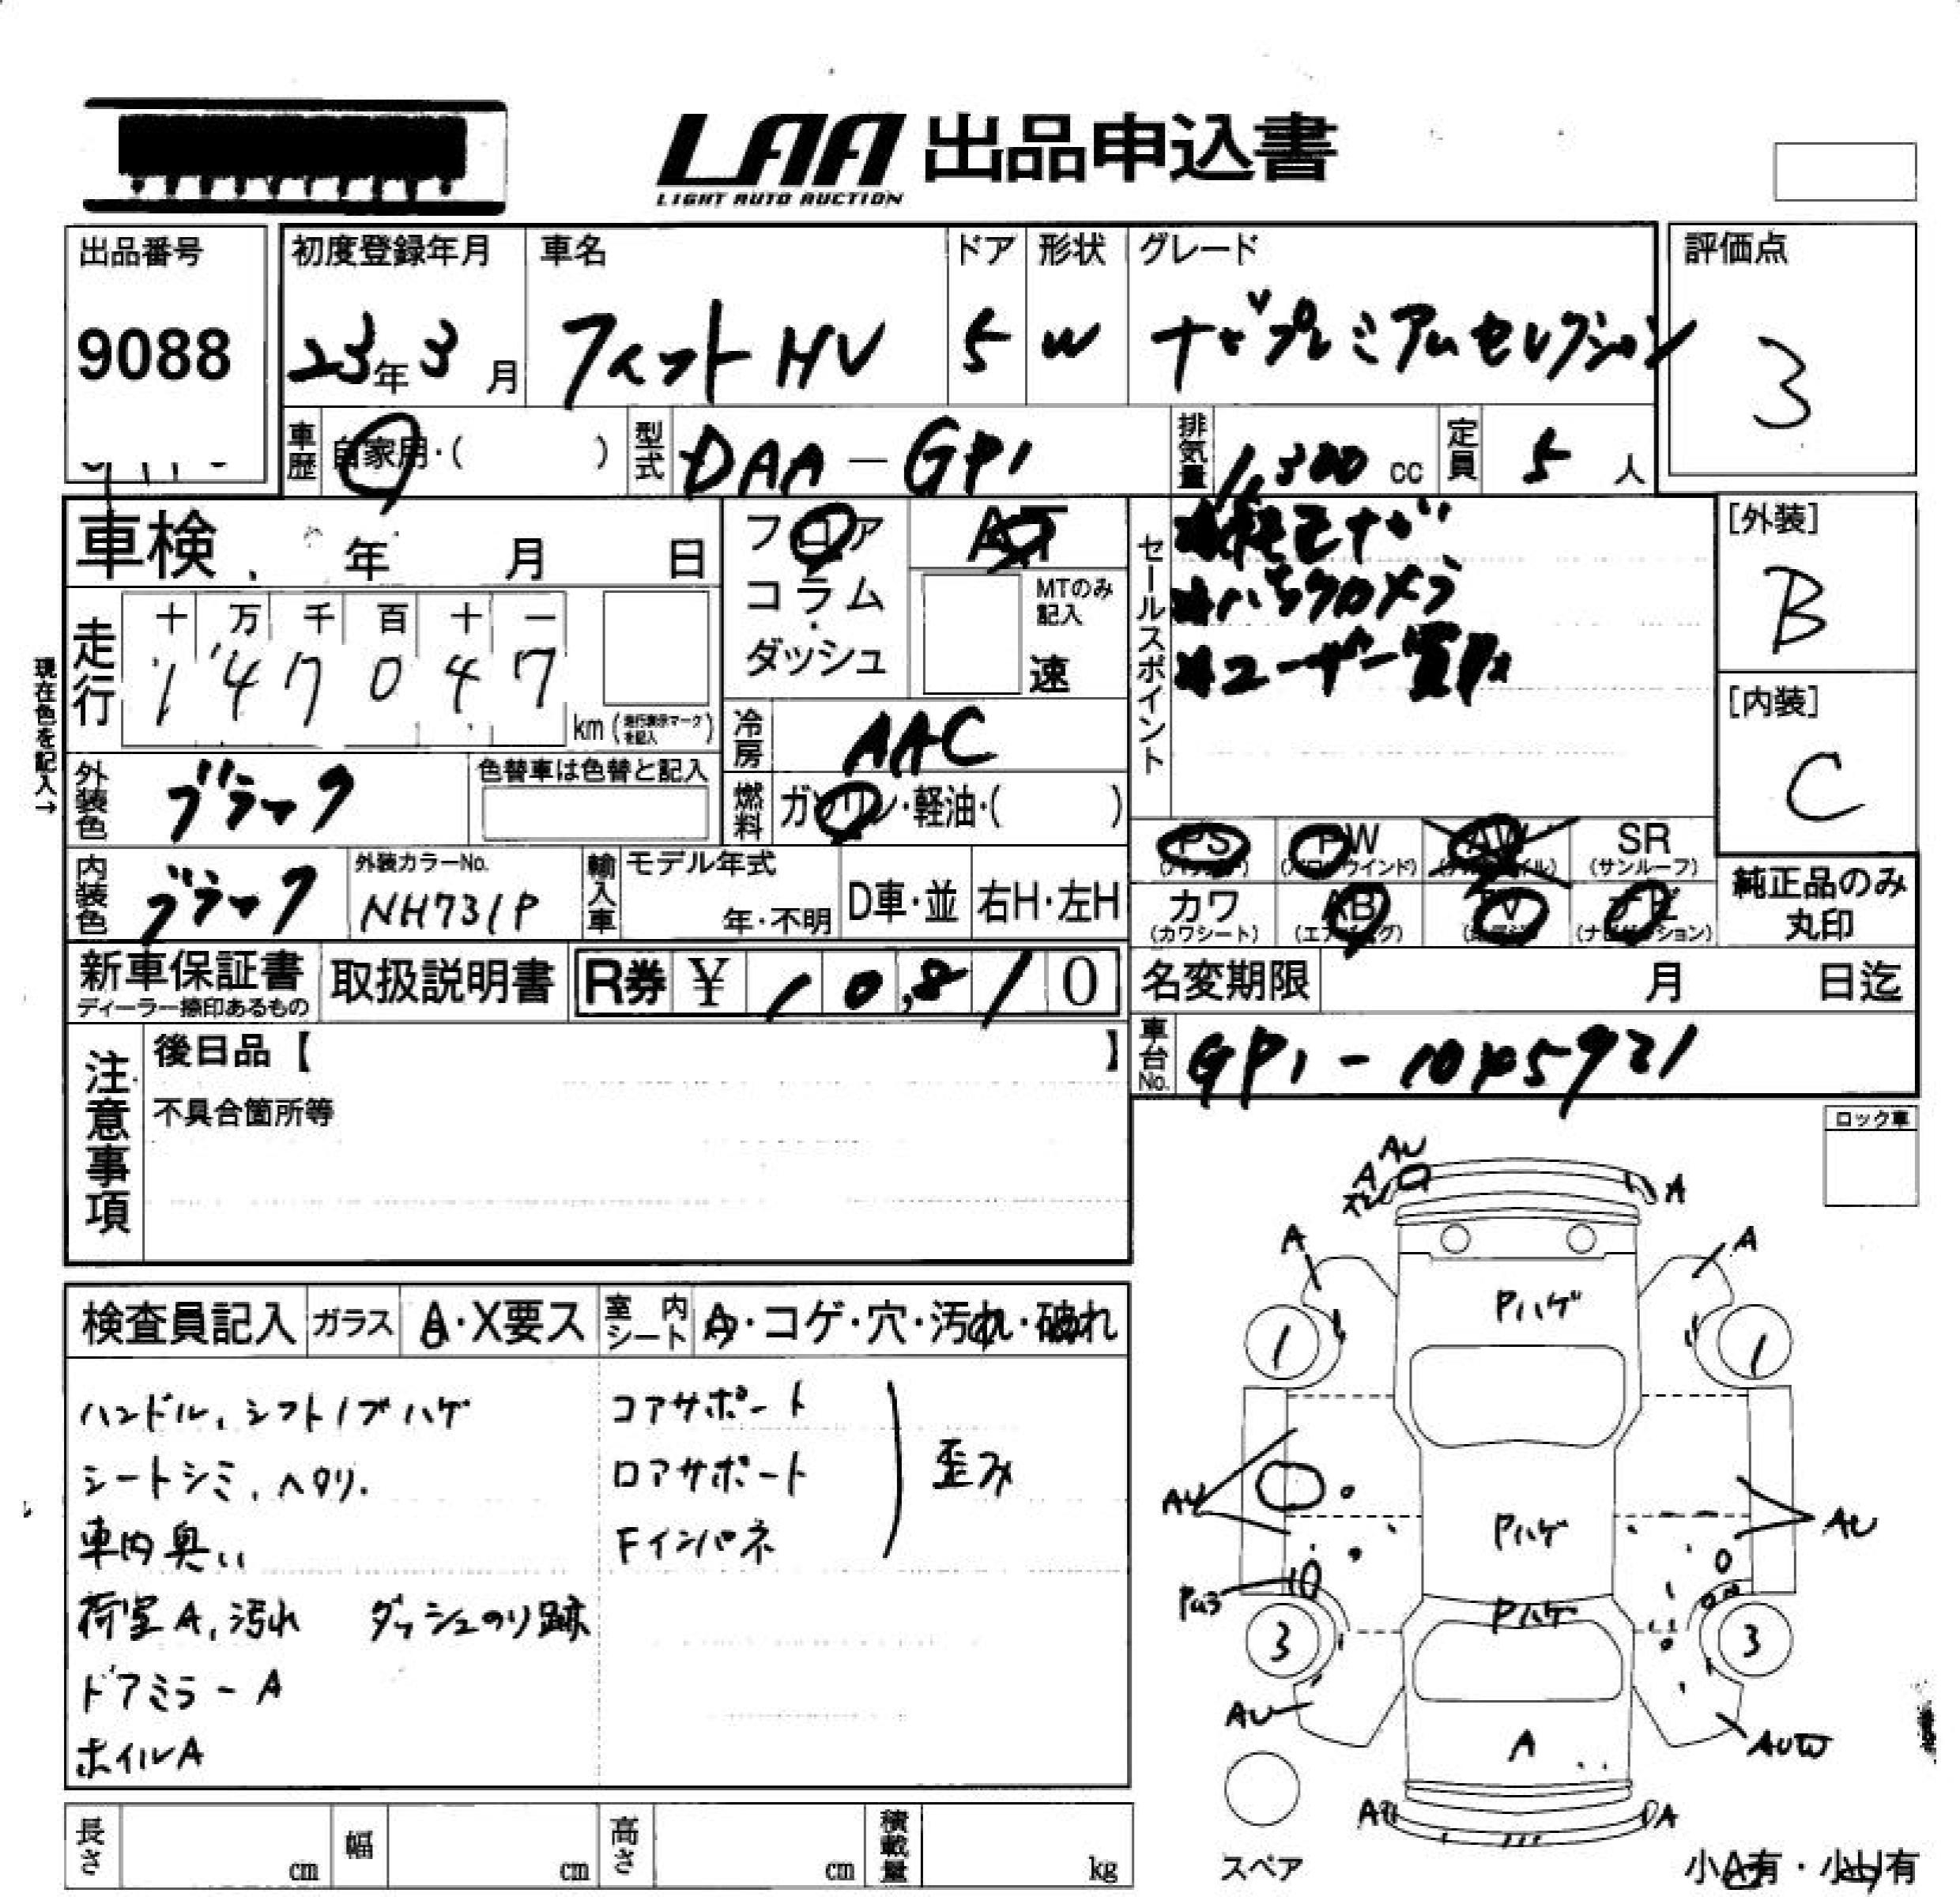 LAA 出品申込書
LIGHT AUTO AUCTION
出品番号
9088
初度登録年月
23年3月
車名
フィットHV
ドア
5
形状
W
グレード
ナビプレミアムセレクション
評価点
3
車歴
自家用・( )
型式
DAA-GP1
排気量
1,300 cc
定員
5 人
車検 年 月 日
フロア
コラム
ダッシュ
AT
MTのみ記入
速
セールスポイント
*純正ナビ
*バックカメラ
*ユーザー買取
[外装]
B
[内装]
C
現在色を記入→
走行
十 万 千 百 十 一
1 4 7 0 4 7
km (走行表示マークを記入)
冷房
AAC
外装色
ブラック
色替車は色替と記入
燃料
ガソリン・軽油・( )
PS
PW
(パワーウインド)
AW
SR
(サンルーフ)
内装色
ブラック
外装カラーNo.
NH731P
輸入車
モデル年式
年・不明
D車・並
右H・左H
カワ
(カワシート)
AB
(エアバッグ)
TV
ナビ
(ナビゲーション)
純正品のみ丸印
新車保証書
ディーラー捺印あるもの
取扱説明書
R券 ¥ 10,810
名変期限 月 日迄
車台No.
GP1-1045921
注意事項
後日品【 】
不具合箇所等
ロック車
検査員記入
ガラス
A・X要ス
室内シート
A・コゲ・穴・汚れ・破れ
ハンドル、シフトノブハゲ
シートシミ、ヘタリ.
車内臭い
荷室A、汚れ ダッシュのり跡
ドアミラーA
ホイルA
コアサポート
ロアサポート
Fインパネ
歪み
AU
A
A
A
A
Pハゲ
1
1
AU
Pハゲ
AU
Pハゲ
3
3
AU
A
AUW
A
スペア
小A有・小U有
長さ cm
幅 cm
高さ cm
積載量 kg